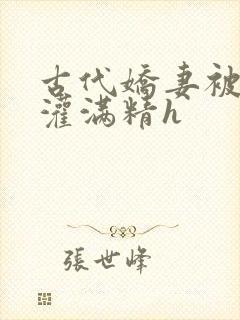 古代嬌妻被
灌满精h
張世峰